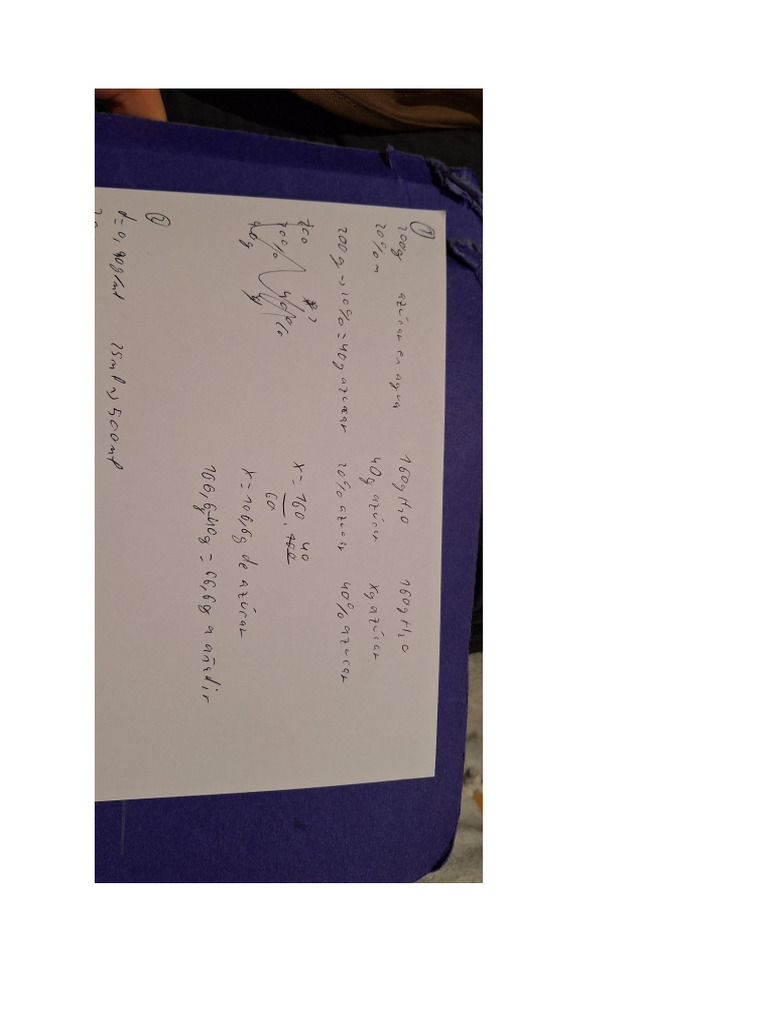 ①
200g azúcar en agua
20% m
200g → 20% = 40g azúcar
200
20% 40%
40g
160g H₂O 160g H₂O
40g azúcar xg azúcar
20% azúcar 40% azúcar
x = 160/60 · 40
x = 106,6g de azúcar
106,6g-40g = 66,6g a añadir
②
d=0,90g/ml 25ml → 500ml